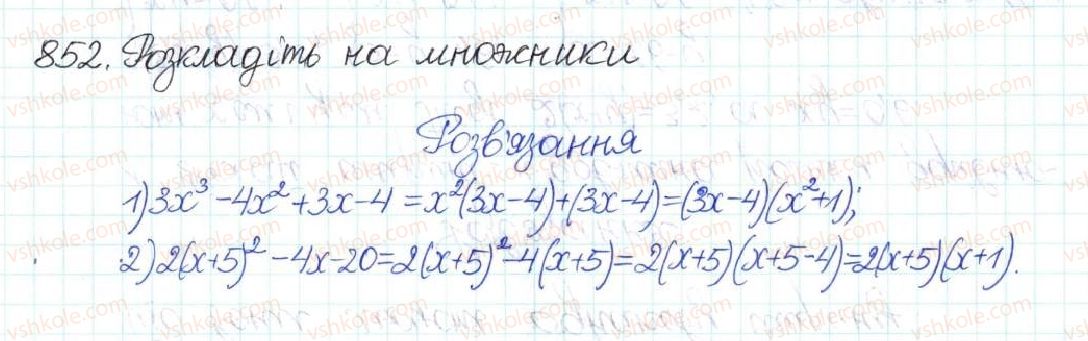 852. Розкладіть на множники
Розв'язання
1) 3x³ - 4x² + 3x - 4 = x²(3x - 4) + (3x - 4) = (3x - 4)(x² + 1);
2) 2(x + 5)² - 4x - 20 = 2(x + 5)² - 4(x + 5) = 2(x + 5)(x + 5 - 4) = 2(x + 5)(x + 1).
vshkole.com